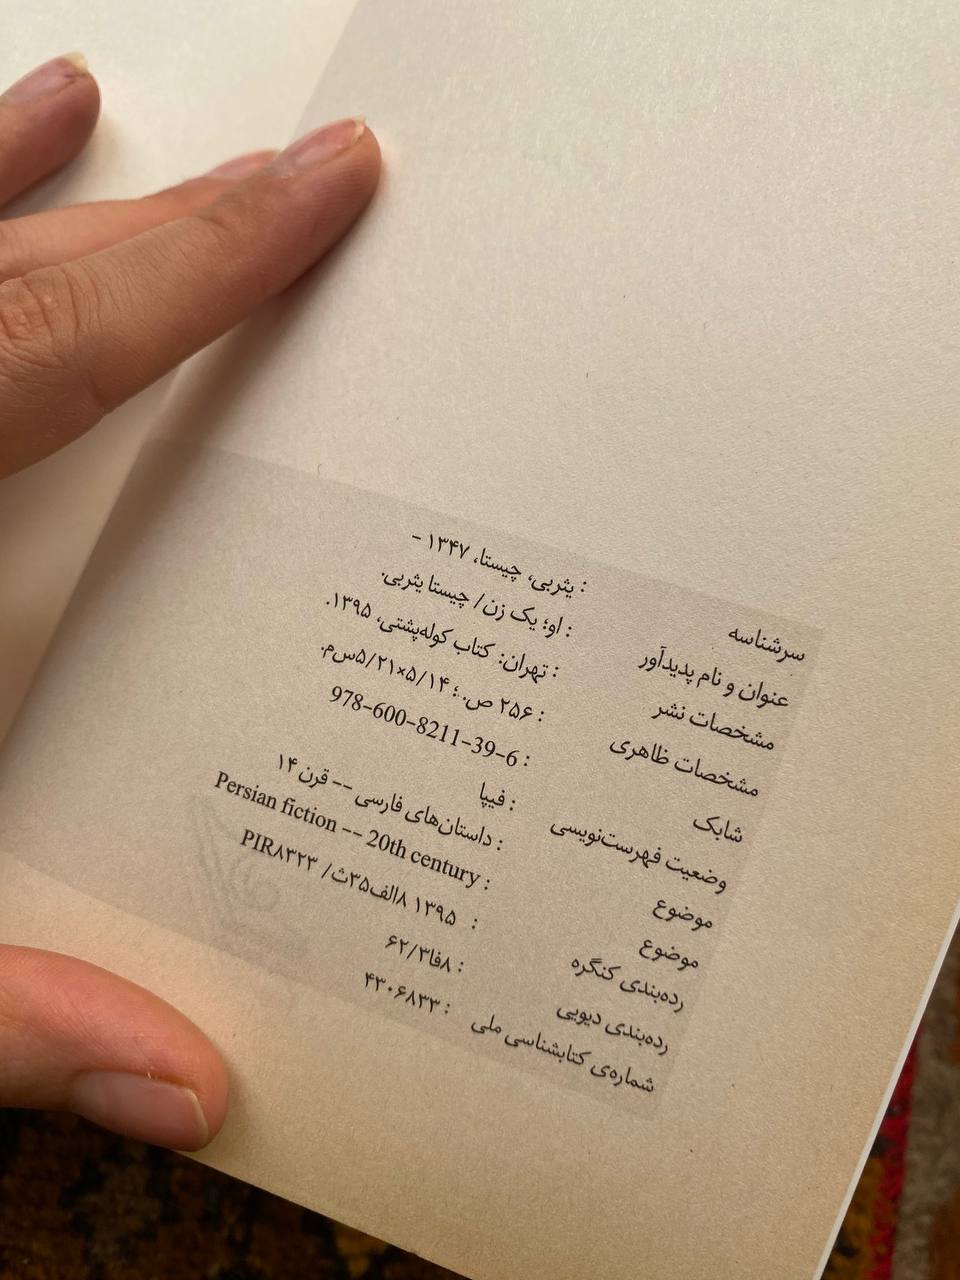 سرشناسه : یثربی، چیستا، ۱۳۴۷ -
عنوان و نام پدیدآور : او؛ یک زن/ چیستا یثربی.
مشخصات نشر : تهران: کتاب کوله‌پشتی، ۱۳۹۵.
مشخصات ظاهری : ۲۵۶ ص.؛ ۵/۲۱×۵/۱۴س‌م.
شابک : 978-600-8211-39-6
وضعیت فهرست‌نویسی : فیپا
موضوع : داستان‌های فارسی -- قرن ۱۴
موضوع : Persian fiction -- 20th century
رده‌بندی کنگره : ۱۳۹۵ ۸الف۳۵ث/ PIR۸۳۲۳
رده‌بندی دیویی : ۸فا۶۲/۳
شماره‌ی کتابشناسی ملی : ۴۳۰۶۸۳۳